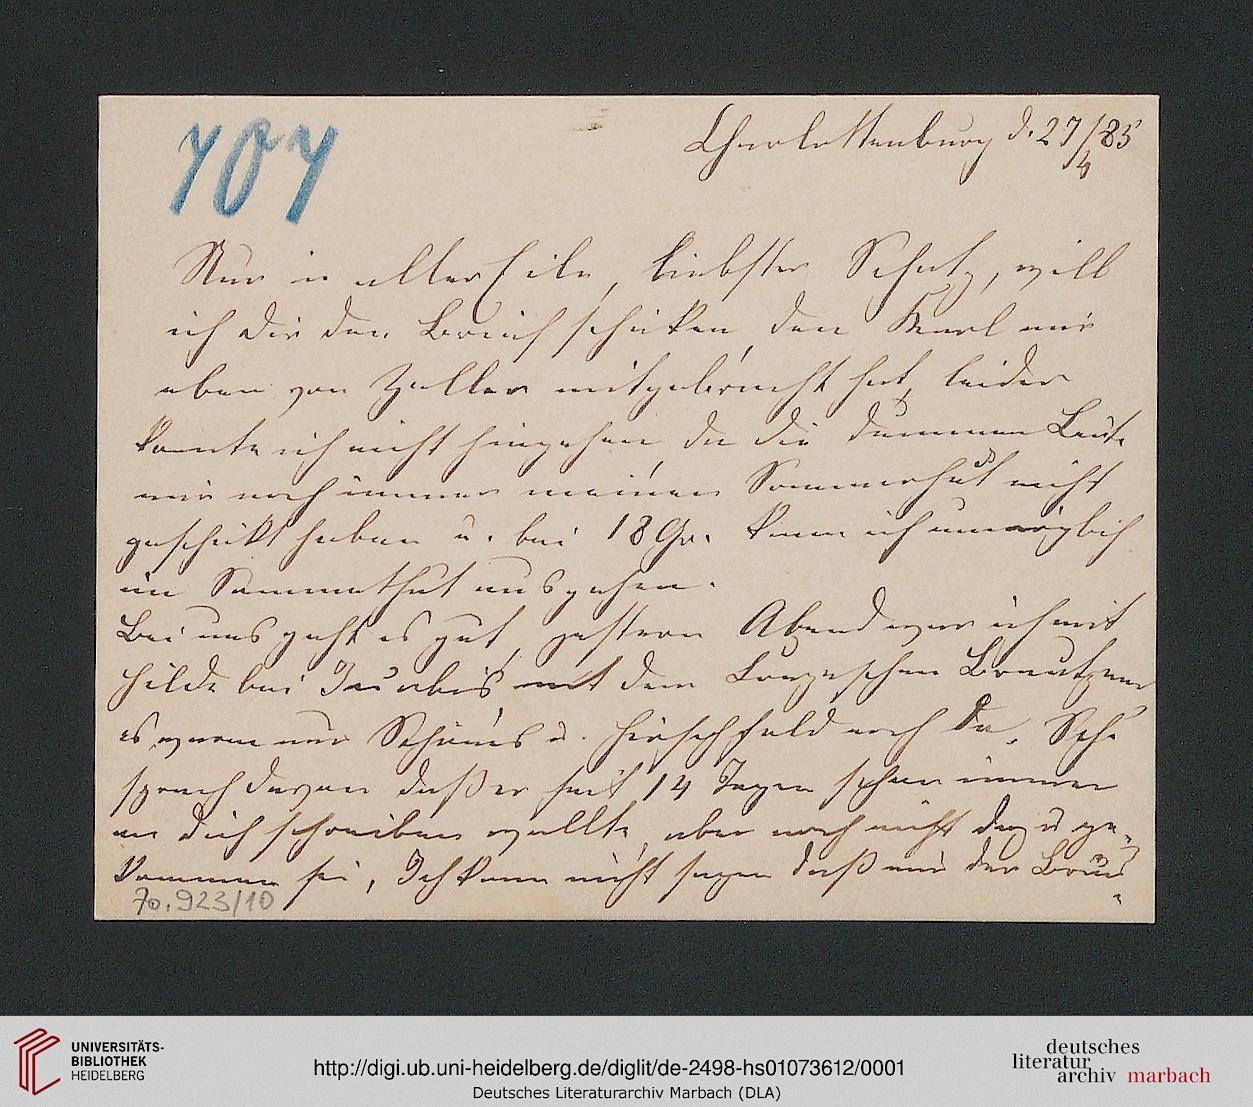 707
Charlottenburg d. 27/4 85
Nur in aller Eile, liebster Schatz, will
ich dir den Brief schicken, den Karl mir
eben von Zeller mitgebracht hat, leider
konnte ich nicht hingehen da die dummen Leute
mir noch immer meinen Sommerhut nicht
geschickt haben u. bei 18 Gr. kann ich unmöglich
im Sammethut ausgehen.
Bei uns geht es gut, gestern Abend war ich mit
Hilde bei Jacobis mit dem Brautpaar
es waren nur u. Hirschfeld noch da, Sch.
sprach davon daß er seit 14 Tagen schon immer
an dich schreiben wollte, aber noch nicht dazu ge-
kommen sei, Ich kann nicht sagen daß mir der
70.923/10
UNIVERSITÄTS-
BIBLIOTHEK
HEIDELBERG
http://digi.ub.uni-heidelberg.de/diglit/de-2498-hs01073612/0001
Deutsches Literaturarchiv Marbach (DLA)
deutsches
literatur
archiv marbach